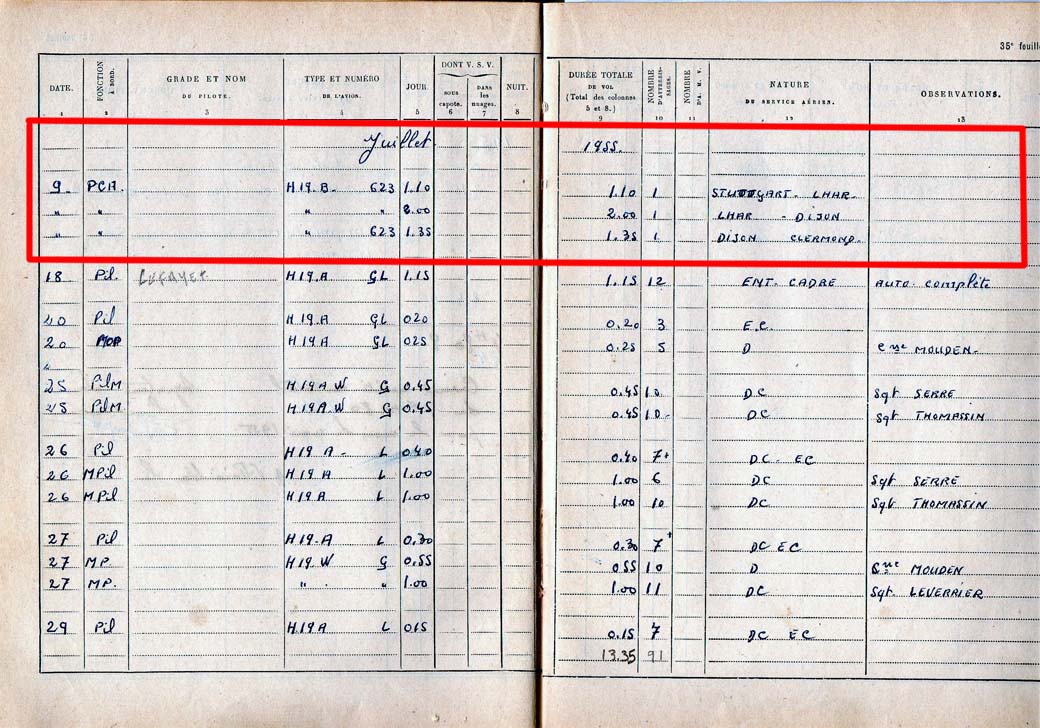 35e feuill
DATE. FONCTION À BORD. GRADE ET NOM DU PILOTE. TYPE ET NUMÉRO DE L'AVION. JOUR. DONT V. S. V. sous capote. dans les nuages. NUIT. DURÉE TOTALE DE VOL (Total des colonnes 5 et 8.) NOMBRE D'ATTERRISSAGES. NOMBRE D'A. M. V. NATURE DU SERVICE AÉRIEN. OBSERVATIONS.
1 2 3 4 5 6 7 8 9 10 11 12 13
Juillet 1955.
9 PCA. H19.B- 623 1.10 1.10 1 STUTTGART- LHAR-
" " " " 2.00 2.00 1 LHAR - DIJON
" " " 623 1.35 1.35 1 DIJON CLERMOND.
18 Pil. H19.A GL 1.15 1.15 12 ENT. CADRE AUTO. complète
20 Pil H19.A GL 020 0.20 3 E.C.
20 H19A GL 025 0.25 5 D Cne MOUDEN.
25 PilM H19A W G 0.45 0.45 10. DC Sgt SERRE
25 PilM H19A.W G 0.45 0.45 10- DC Sgt THOMASSIN
26 Pil H19 A- L 0.40 0.40 7+ DC- EC
26 MPil H19A L 1.00 1.00 6 DC Sgt SERRE
26 MPil H19A L 1.00 1.00 10 DC Sgt THOMASSIN
27 Pil H19-A L 0.30 0.30 7+ DC EC
27 MP. H19.W G 0.55 0.55 10 D Cne MOUDEN
27 MP. " " 1.00 1.00 11 DC Sgt LEVERRIER
29 Pil H.19A L 015 0.15 7 DC EC
13.35 91